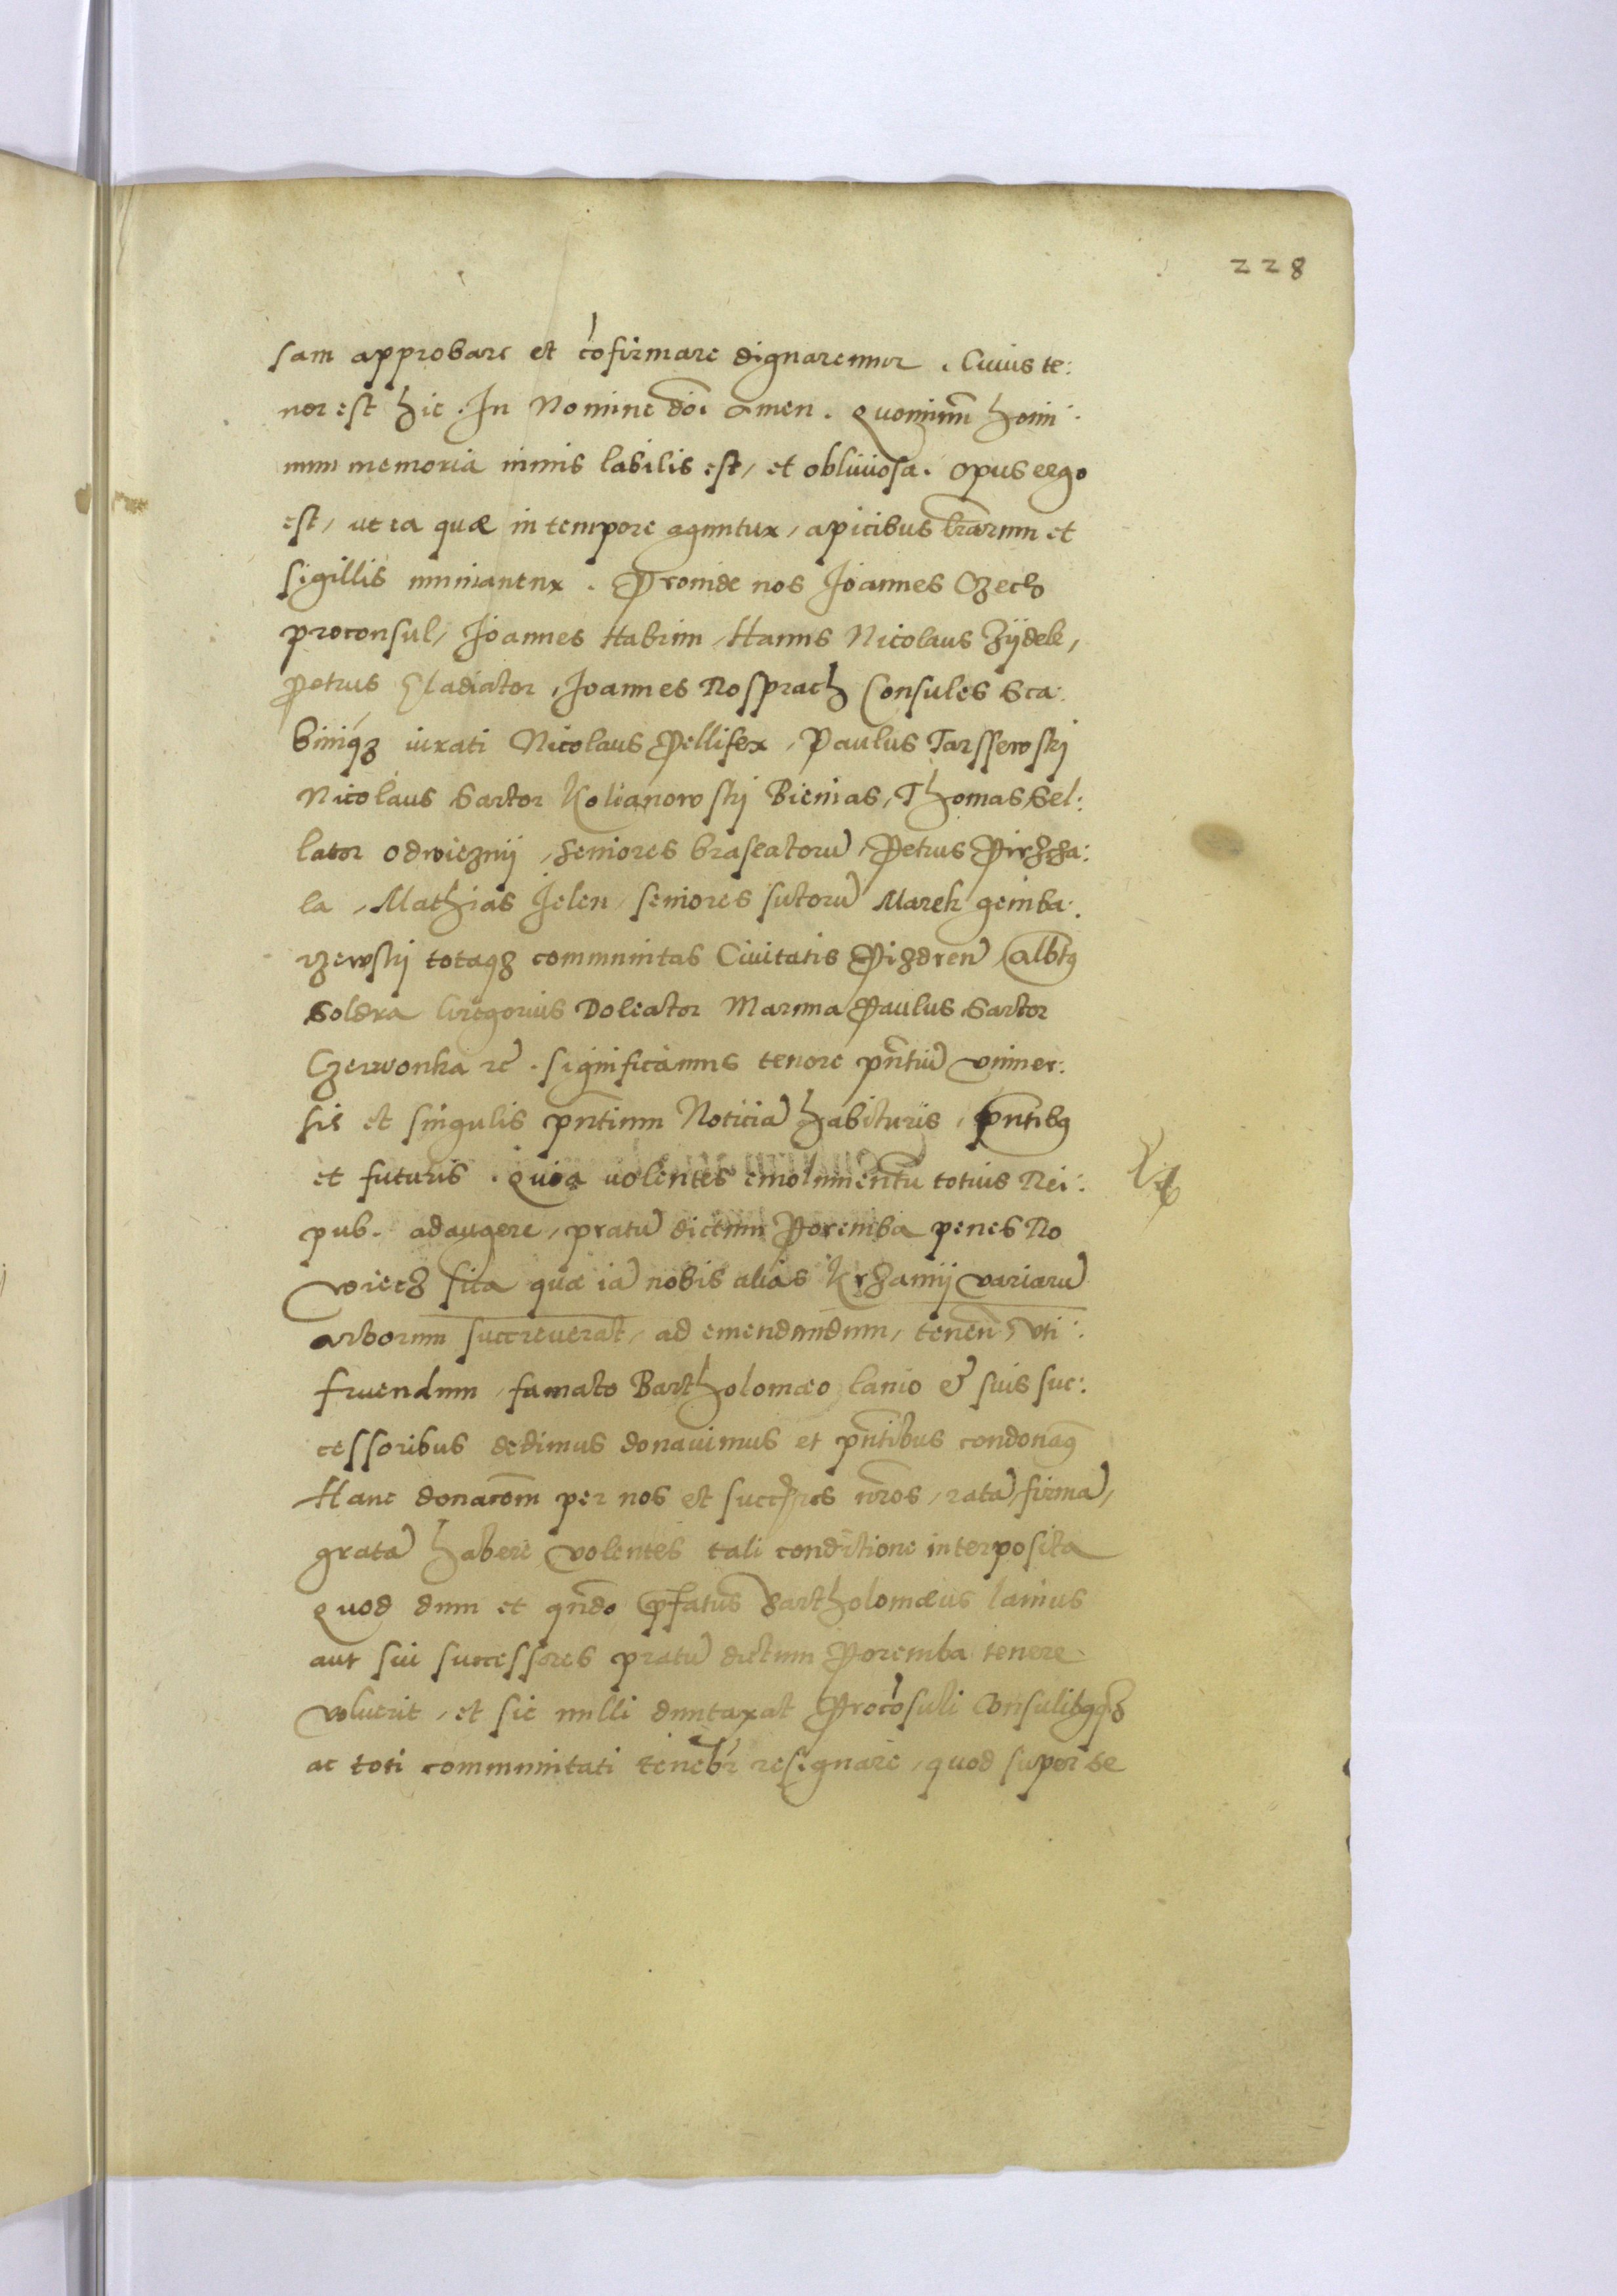 228
sam approbare et cōfirmare dignaremur. Cuius te:
nor est hic. In Nomine dōi amen. Quoniam homi:
num memoria nimis labilis est, et obliuiosa. Opus ergo
est, ut ea quæ in tempore aguntur, apicibus lrārum et
sigillis muniantur. Proinde nos Joannes Czech
proconsul, Joannes Habrim, Hanns Nicolaus Zÿdek,
Petrus Gladiator, Joannes Rosprach Consules Sca:
biniqʒ iurati Nicolaus Pellifex, Paulus Tarssewskÿ
Nicolaus Sartor Kolianowskÿ Bienias, Thomas Sel:
lator Odwieznÿ, seniores braseatorū, Petrus Pirzcha:
la, Mathias Jelen, seniores sutorū Marek gemba:
rzewskÿ totaqʒ communitas Ciuitatis Pizdreñ, Albtꝰ
Soldra Gregorius Doleator Marma Paulus Sartor
Czerwonka rc̃. significamus tenore pn̄tiū vniuer:
sis et singulis pn̄tium Noticiā habituris, pn̄tibꝰ
et futuris. Quia volentes emolumentū totius Rei:
pub. adaugere, pratū dictum Poremba penes No
wiecz sita quæ iā nobis alias Krzamÿ variarū
arborum succreuerat, ad emendandum, teneñ, vti:
fruendum, famato Bartholomæo lanio et suis suc:
cessoribus dedimus donauimus et pn̄tibus condonamꝰ
Hanc donacōm per nos et succ̄res nr̄os, ratā, firmā,
gratā habere volentes tali conditione interposita
Quod dum et qn̄do p̄fatus Bartholomæus lanius
aut sui successores pratū dictum Poremba tenere
voluerit, et sic nulli duntaxat Procōsuli Consulibꝰqʒ
ac toti communitati teneb̄r resignare, quod super se